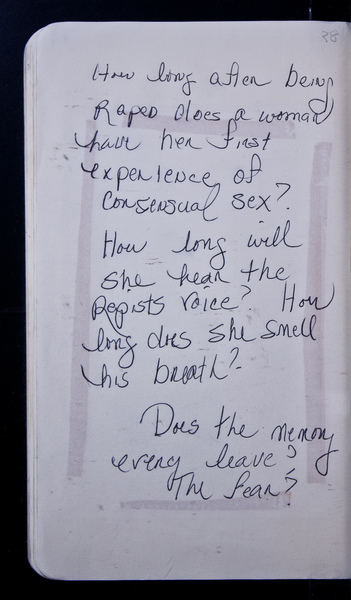 38
How long after being
Raped does a woman
have her first
experience of
consensual sex?
How long will
she hear the
Rapists voice? How
long does she smell
his breath?
Does the memory
every leave?
The fear?